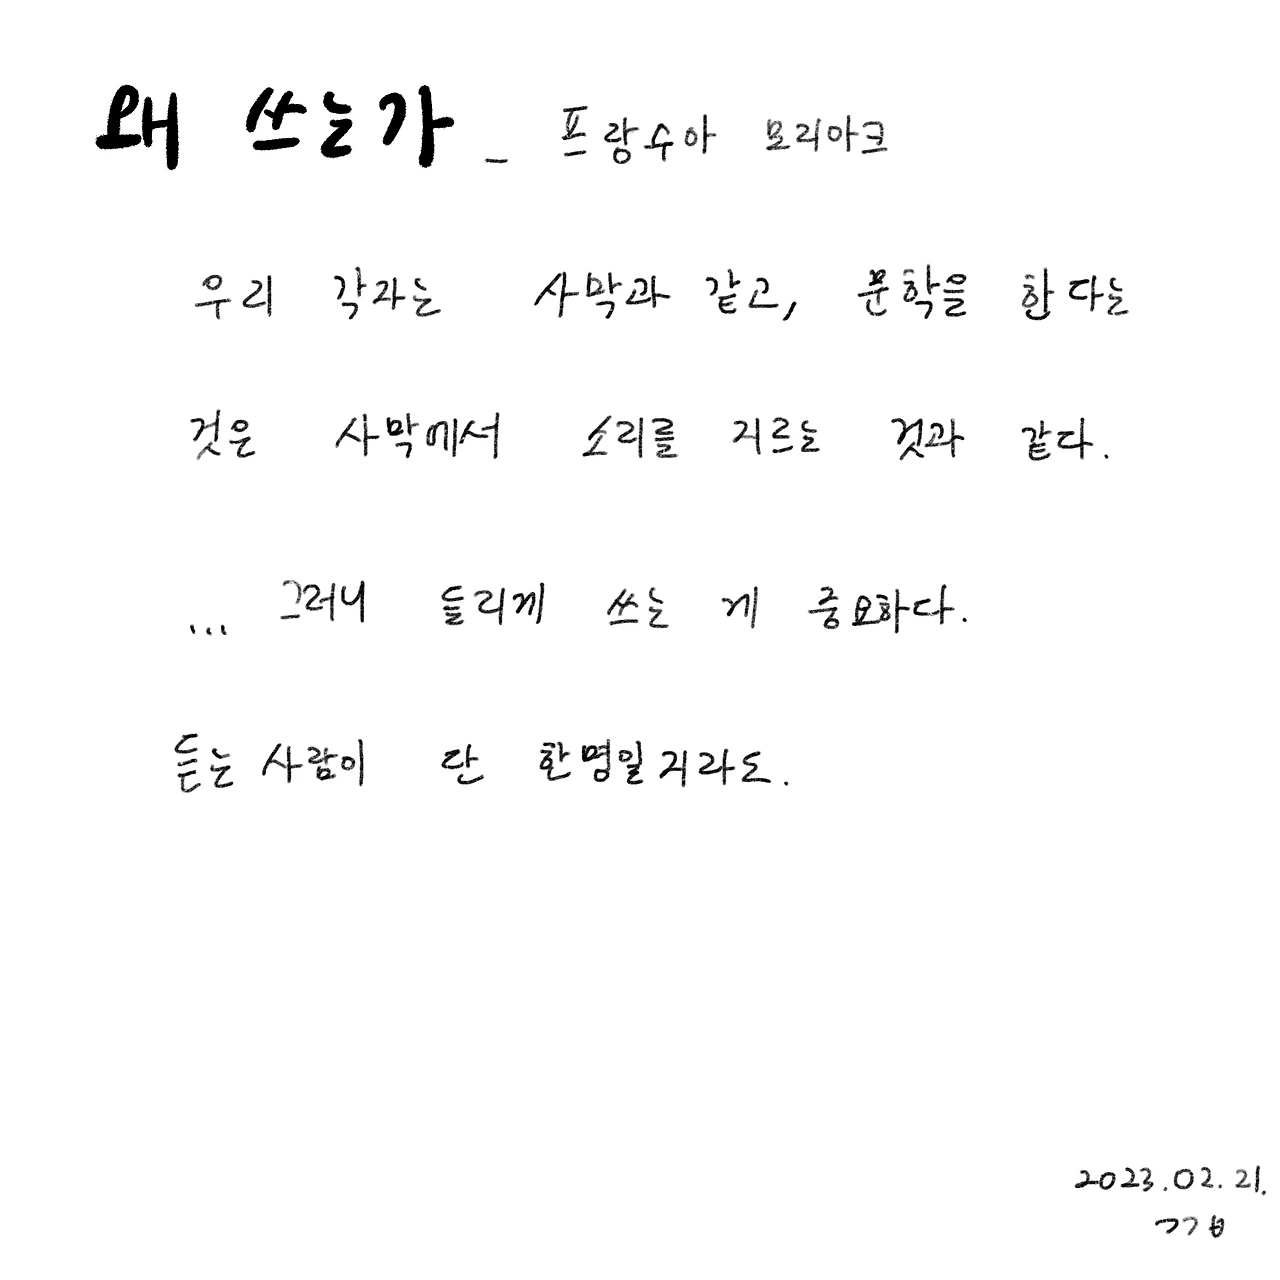 왜 쓰는가 - 프랑수아 모리아크
우리 각자는 사막과 같고, 문학을 한다는
것은 사막에서 소리를 지르는 것과 같다.
... 그러니 들리게 쓰는 게 중요하다.
듣는 사람이 단 한명일지라도.
2023.02.21.
ㄱㄱㅂ